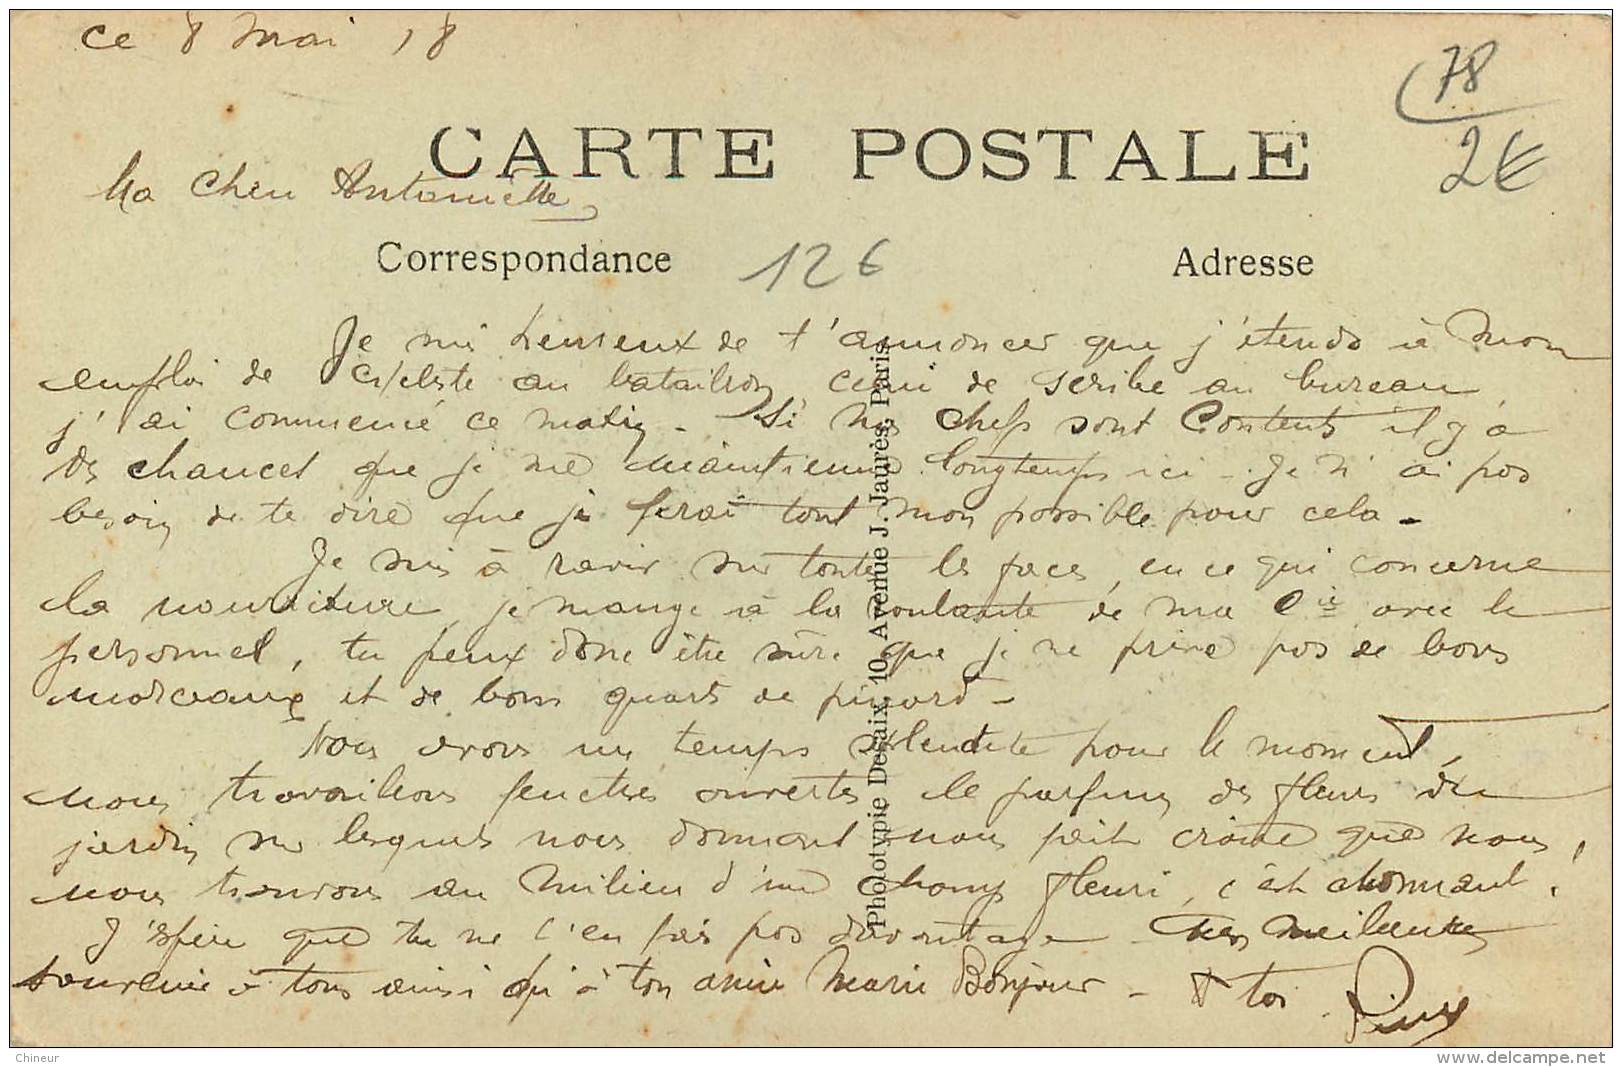 ce 8 mai 18
78
2€
CARTE POSTALE
Ma chère Antoinette,
Correspondance
12€
Adresse
Je suis heureux de t'annoncer que j'étends à mon
emploi de cycliste au bataillon celui de scribe au bureau,
j'ai commencé ce matin - Si mes chefs sont contents il y a
des chances que je me maintienne longtemps ici - Je n'ai pas
besoin de te dire que je ferai tout mon possible pour cela -
Je suis à ravir sur toutes les faces, en ce qui concerne
la nourriture, je mange à la roulante de ma Cie avec le
personnel, tu peux donc être sûre que je ne prive pas de bons
morceaux et de bons quarts de pinard -
Nous avons un temps splendide pour le moment,
nous travaillons fenêtres ouvertes, le parfum des fleurs du
jardin sur lesquels nous donnent nous fait croire que nous,
nous trouvons au milieu d'un champ fleuri, c'est charmant.
J'espère que tu ne t'en fais pas davantage - mes meilleurs
souvenirs à tous ainsi qu'à ton amie Marie Bonjour - à toi
Phototypie Desaix, 10, Avenue J. Jaurès, Paris.
Chineur
www.delcampe.net